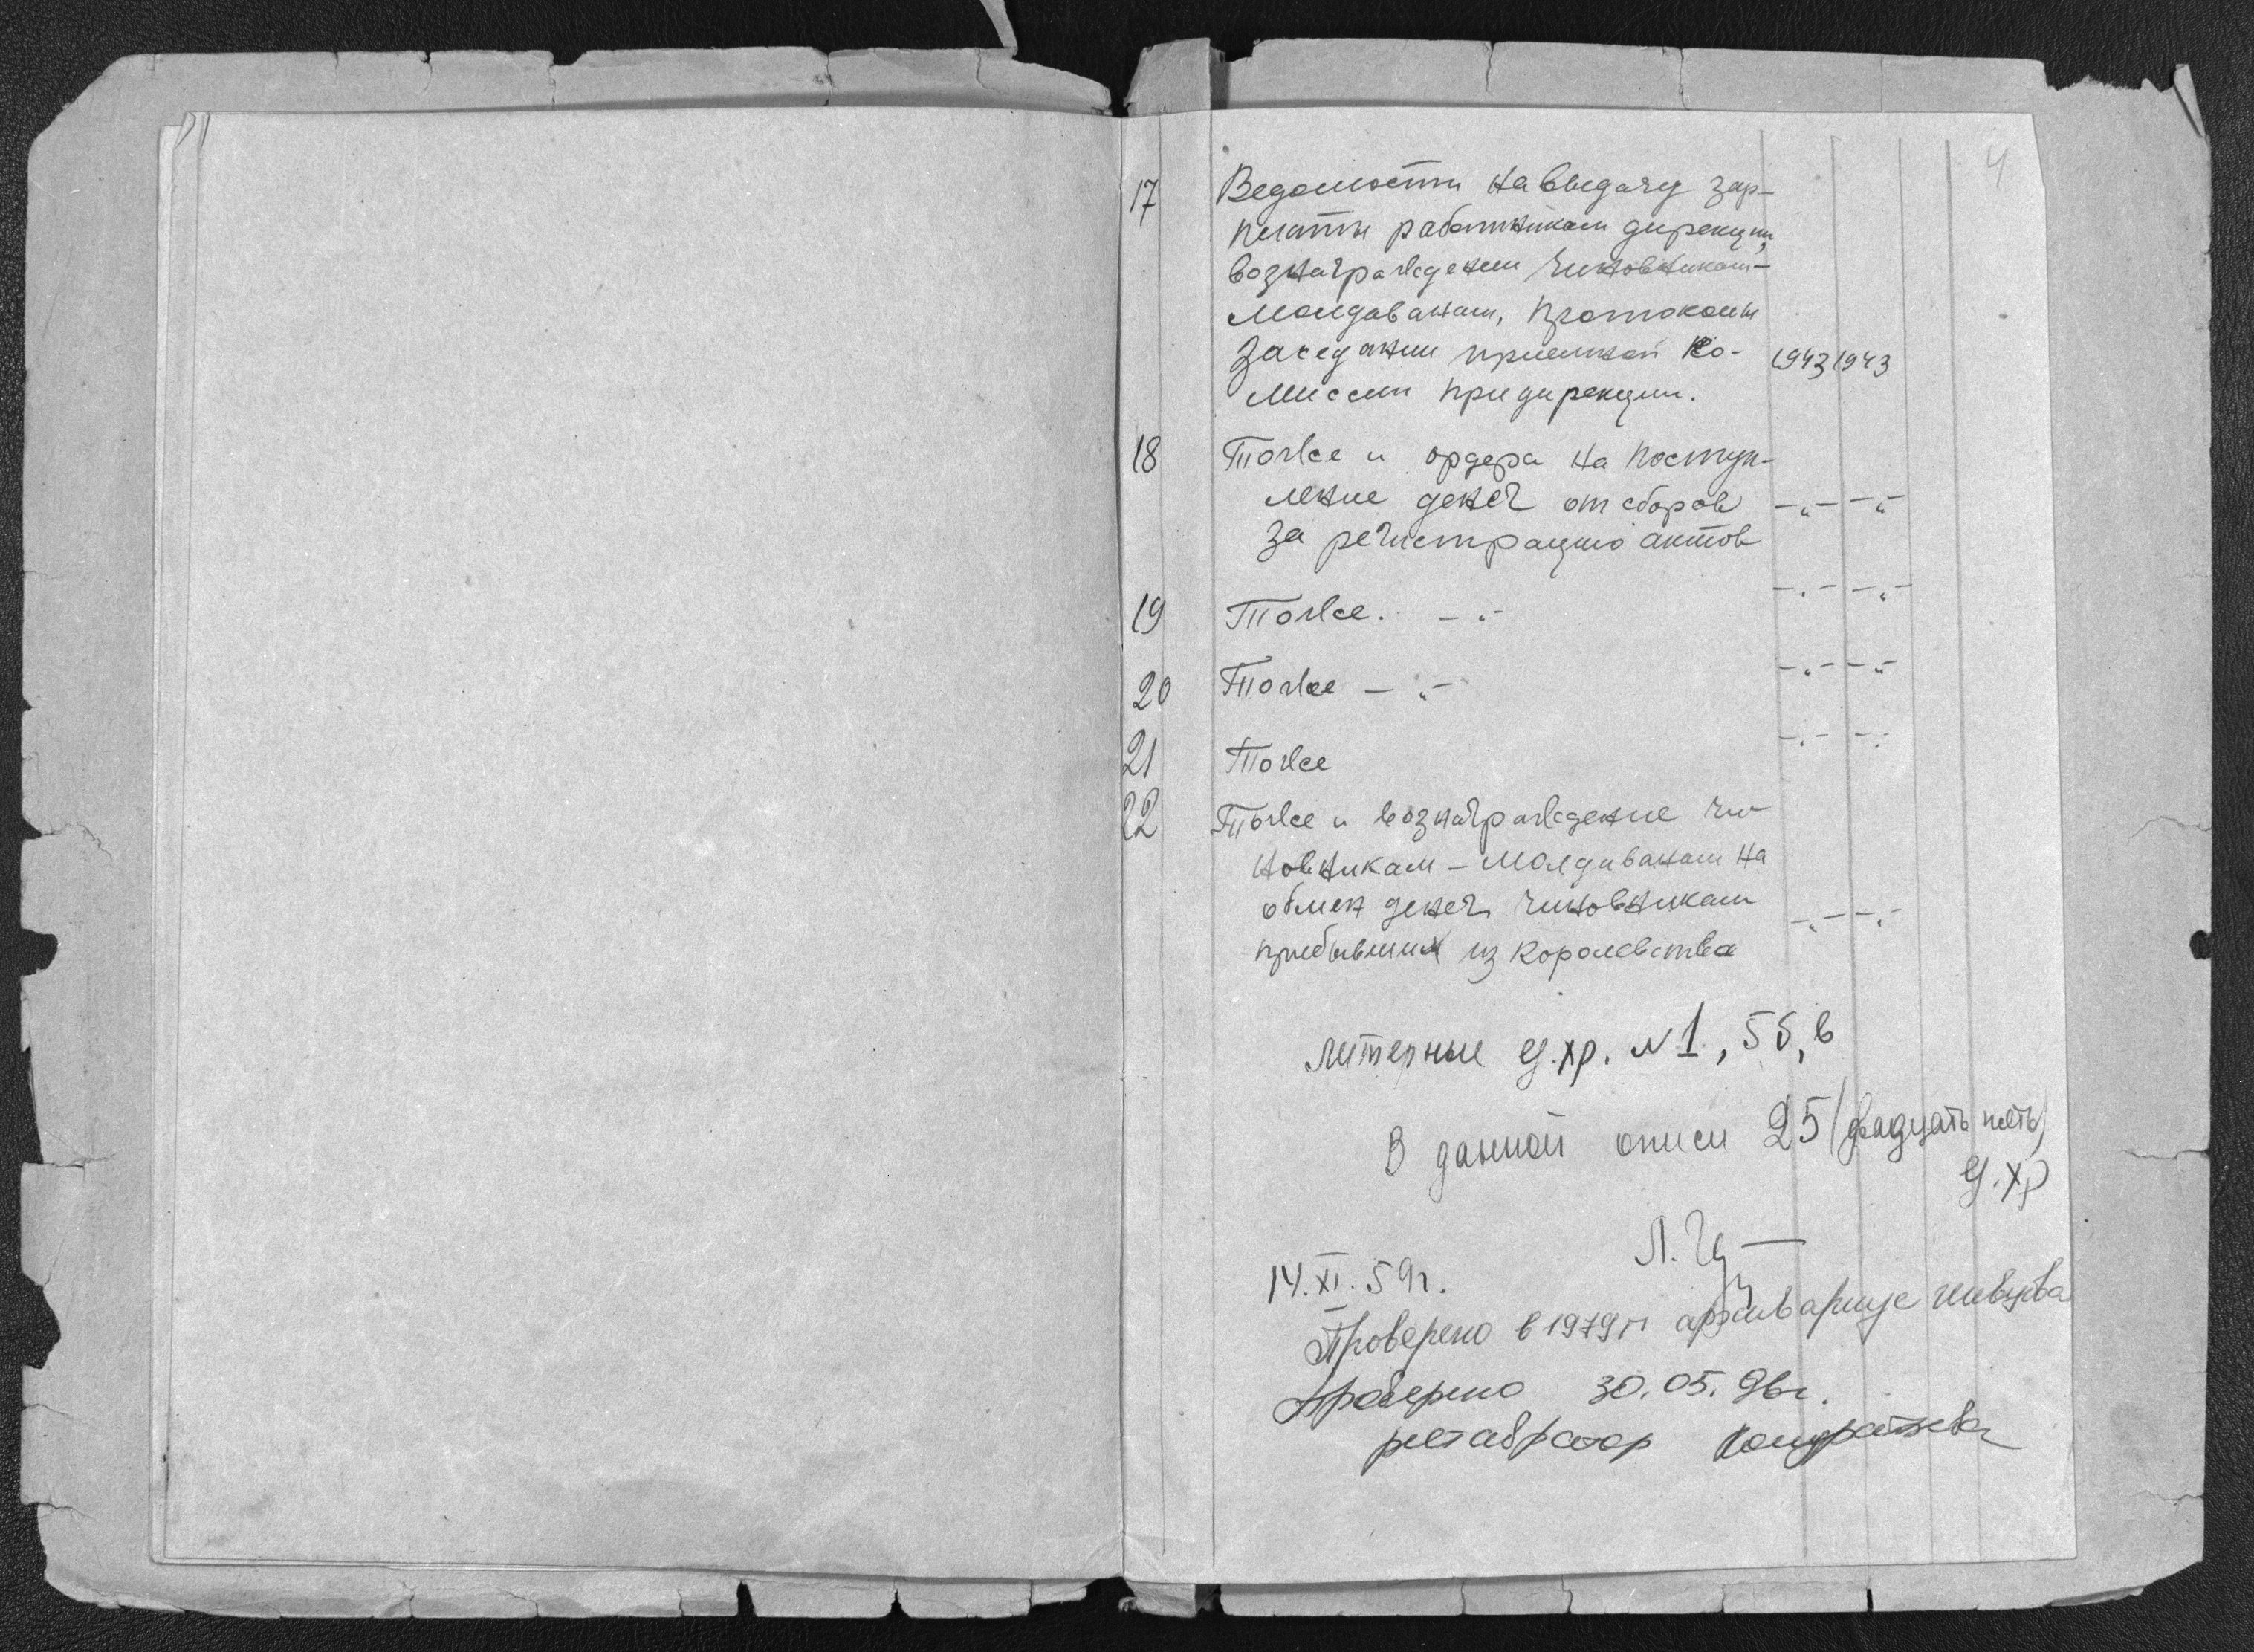 4
17 Ведомости на выдачу зар-
платы работникам дирекции,
вознаграждении чиновникам-
молдаванам, протоколы
заседании приемной ко- 1943 1943
миссии при дирекции.
18 Тоже и ордера на поступ-
ление денег от сборов -"- -"-
за регистрацию актов
19 Тоже. -"- -"- -"-
20 Тоже -"- -"- -"-
21 Тоже -"- -"-
22 Тоже и вознаграждение чи-
новникам-молдаванам на
обмен денег чиновникам -"- -"-
прибывших из королевства
Литерные ед.хр. №1, 5б, в
В данной описи 25 (двадцать пять)
ед. хр
Л.
14.XI.59г.
Проверено в 1979г архивариус
Проверено 30.05.96г.
реставратор Кондратьева